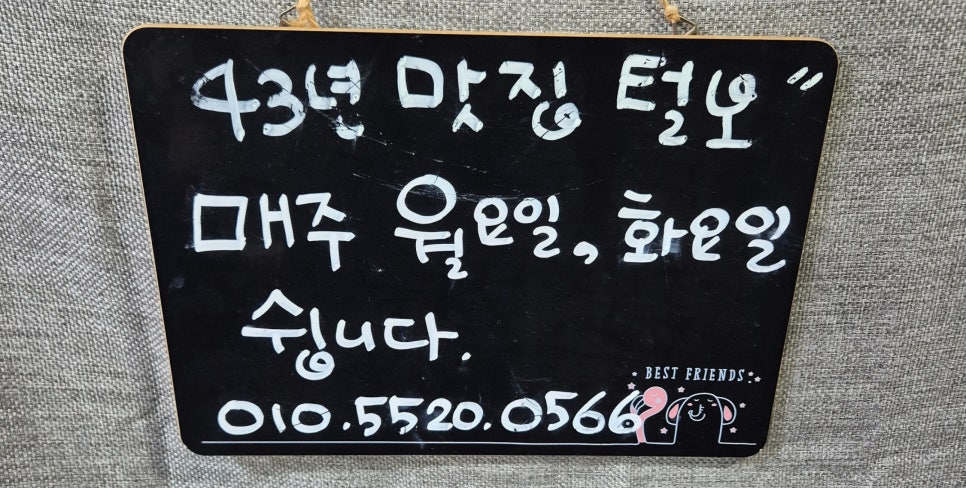 43년 맛집 털보"
매주 월요일, 화요일
쉽니다.
BEST FRIENDS
010.5520.0566